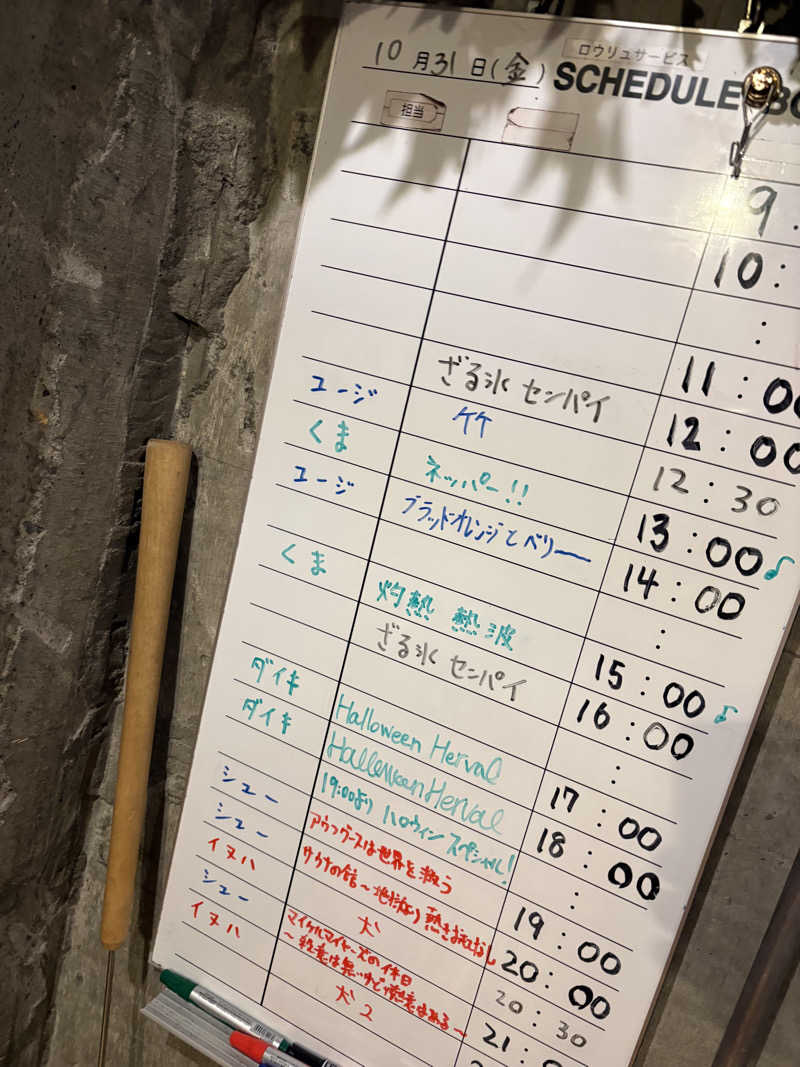 10月31日(金)
ロウリュサービス
SCHEDULE BO
担当
9:
10:
:
ざる氷 センパイ 11:00
ユージ 竹 12:00
くま ネッパー!! 12:30
ユージ ブラッドオレンジとベリー 13:00♪
14:00
くま 灼熱 熱波 :
ざる氷 センパイ 15:00♪
16:00
ダイキ Halloween Herval :
ダイキ Halloween Herval 17:00
19:00より ハロウィンスペシャル! 18:00
シュー アウフグースは世界を救う :
シュー サウナの館〜地獄より熱きおもてなし 19:00
イヌハ 犬 20:00
シュー マイケルマイヤーズの休日 20:30
〜殺意は無いけど熱意はある〜
イヌハ 犬2 21:0